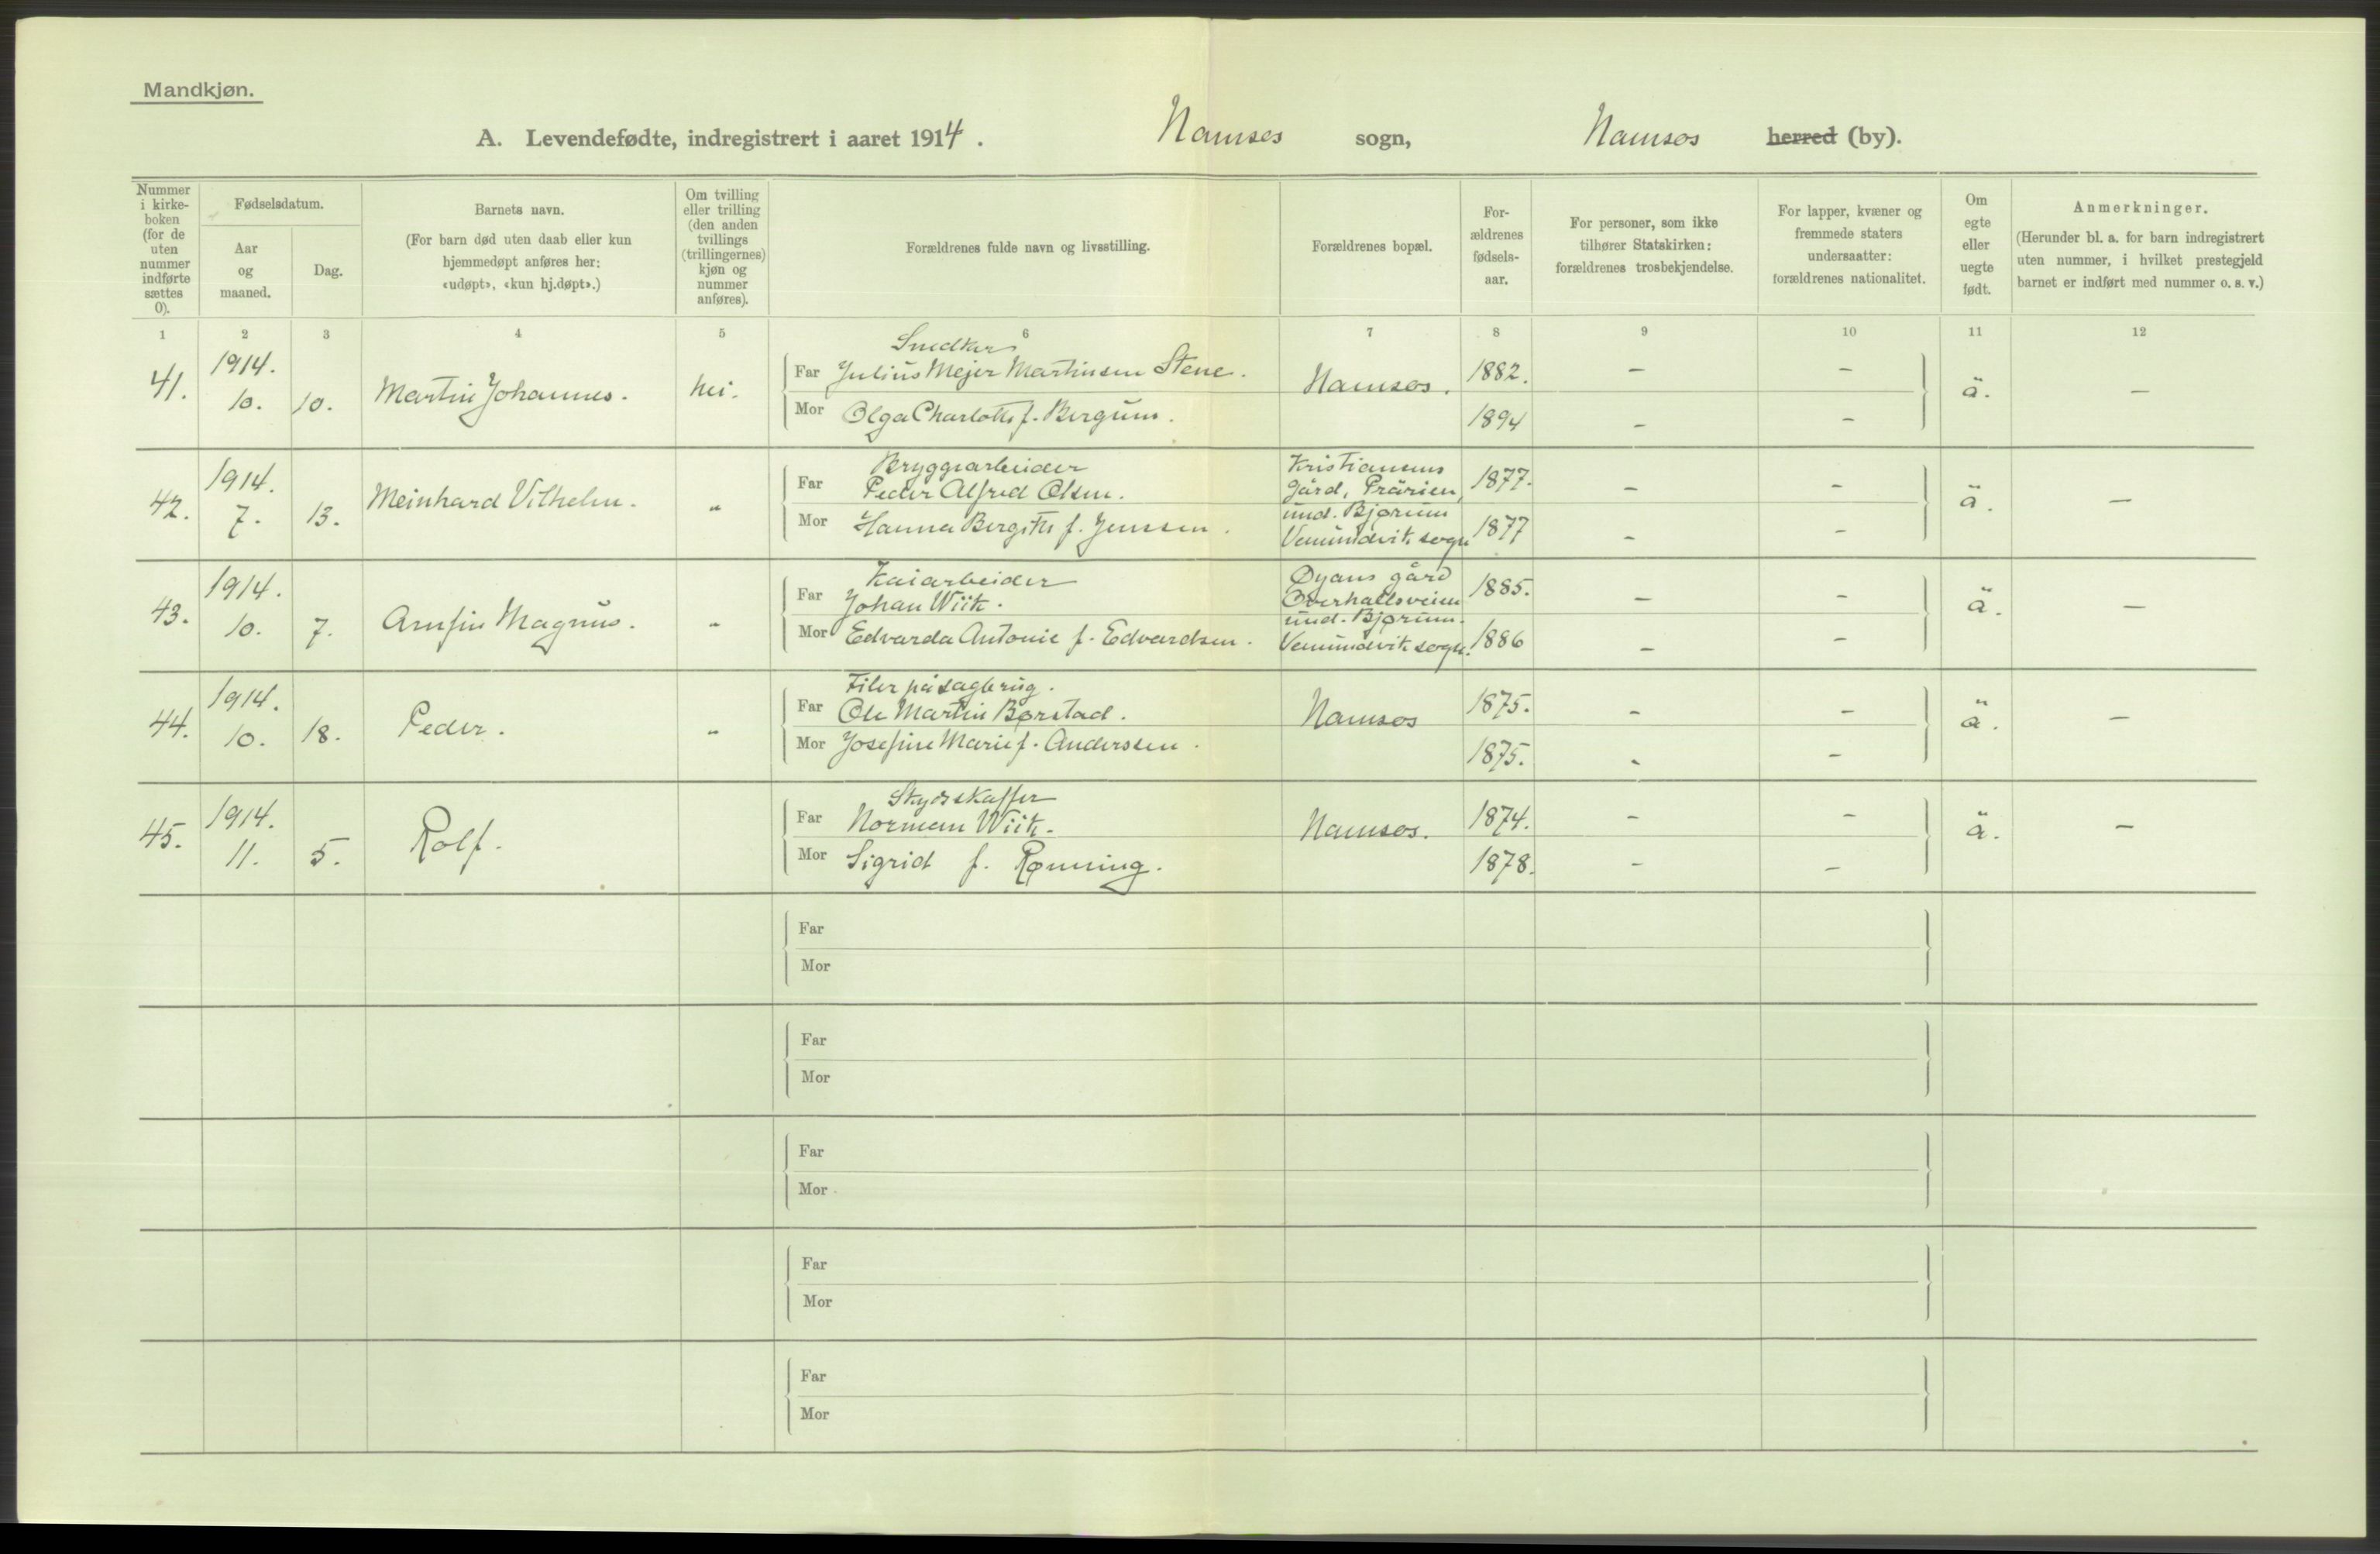 Mandkjøn.
A. Levendefødte, indregistrert i aaret 1914. Namsos sogn, Namsos herred (by).
Nummer
i kirke-
boken
(for de
uten
nummer
indførte
sættes
0).
Fødselsdatum.
Aar
og
maaned.
Dag.
Barnets navn.
(For barn død uten daab eller kun
hjemmedøpt anføres her:
«udøpt», «kun hj.døpt».)
Om tvilling
eller trilling
(den anden
tvillings
(trillingernes)
kjøn og
nummer
anføres).
Forældrenes fulde navn og livsstilling.
Forældrenes bopæl.
For-
ældrenes
fødsels-
aar.
For personer, som ikke
tilhører Statskirken:
forældrenes trosbekjendelse.
For lapper, kvæner og
fremmede staters
undersaatter:
forældrenes nationalitet.
Om
egte
eller
uegte
født.
Anmerkninger.
(Herunder bl. a. for barn indregistrert
uten nummer, i hvilket prestegjeld
barnet er indført med nummer o. s. v.)
1 2 3 4 5 6 7 8 9 10 11 12
41. 1914. 10. 10. Martin Johannes. nei.
Snedker
Far Julius Mejer Martinsen Stene. Namsos. 1882. - - ä. -
Mor Olga Charlotte f. Bergum. 1894 - -
42. 1914. 7. 13. Meinhard Vilhelm. "
Bryggearbeider
Far Peder Alfred Olsen. 1877. - - ä. -
Mor Hanna Bergitte f. Jenssen. 1877 - -
Kristiansens
gård, Prärien,
und. Bjørum
Vemundvik sogn
43. 1914. 10. 7. Arnfin Magnus. "
Kaiarbeider
Far Johan Wiik. 1885. - - ä. -
Mor Edvarda Antonie f. Edvardsen. 1886 - -
Øyans gård
Overhallsveien
und. Bjørum.
Vemundvik sogn.
44. 1914. 10. 18. Peder. "
Filer på sagbrug.
Far Ole Martin Børstad. Namsos 1875. - - ä. -
Mor Josefine Marie f. Anderssen. 1875. - -
45. 1914. 11. 5. Rolf.
Skydsskaffer
Far Norman Wiik. Namsos. 1874. - - ä. -
Mor Sigrid f. Rønning. 1878. - -
Far
Mor
Far
Mor
Far
Mor
Far
Mor
Far
Mor